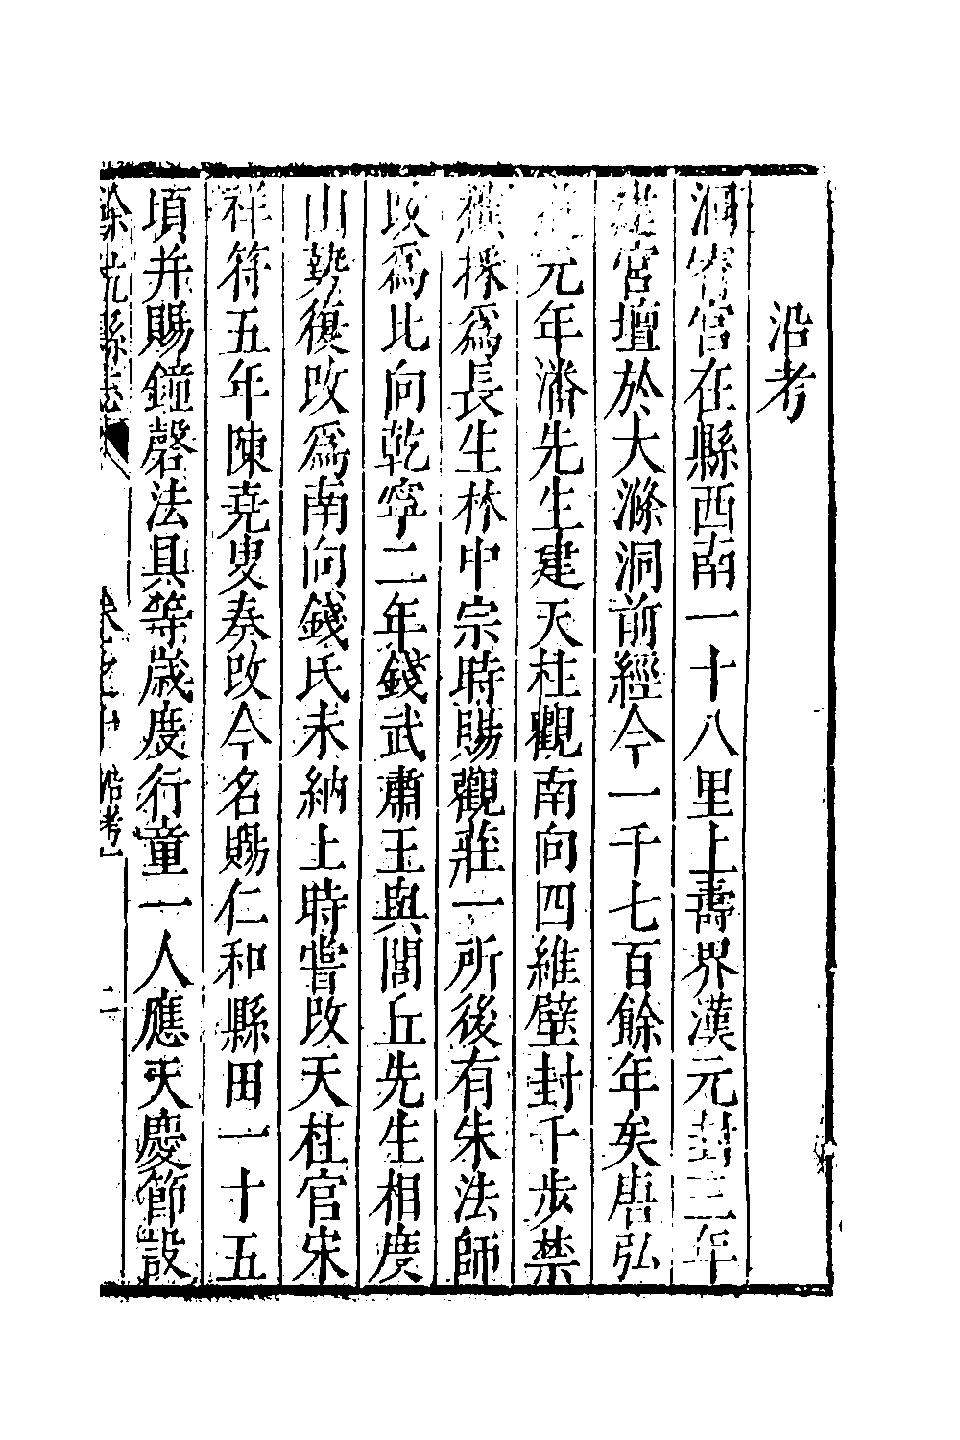 沿考
洞霄宮在縣西南一十八里上壽界漢元封三年
建宮壇於大滌洞前經今一千七百餘年矣唐弘
道元年潘先生建天柱觀南向四維壁封千步禁
樵採爲長生林中宗時賜觀莊一所後有朱法師
改爲北向乾寧二年錢武肅王與閭丘先生相度
山勢復改爲南向錢氏未納土時嘗改天柱宮宋
祥符五年陳堯叟奏改今名賜仁和縣田一十五
頃并賜鐘磬法具等歲度行童一人應天慶節設
餘杭縣志 卷之 沿考 二